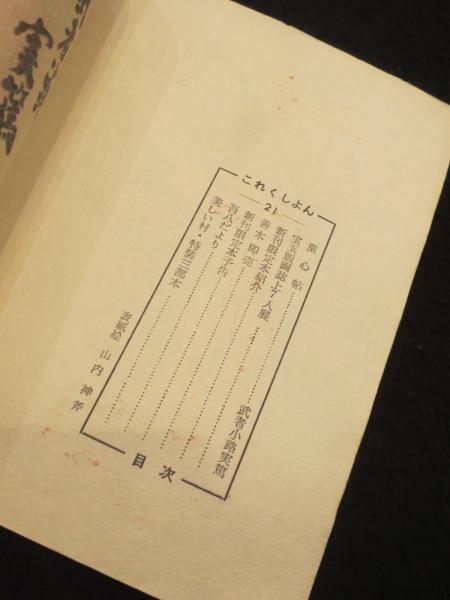 これくしよん
21
童心帖……武者小路実篤
宝玉版画誌上7人展
新刊限定本紹介
善本即売
新刊限定本予告
吾八だより
美しい村・特装三部本
表紙絵 山内神斧
目次
実篤